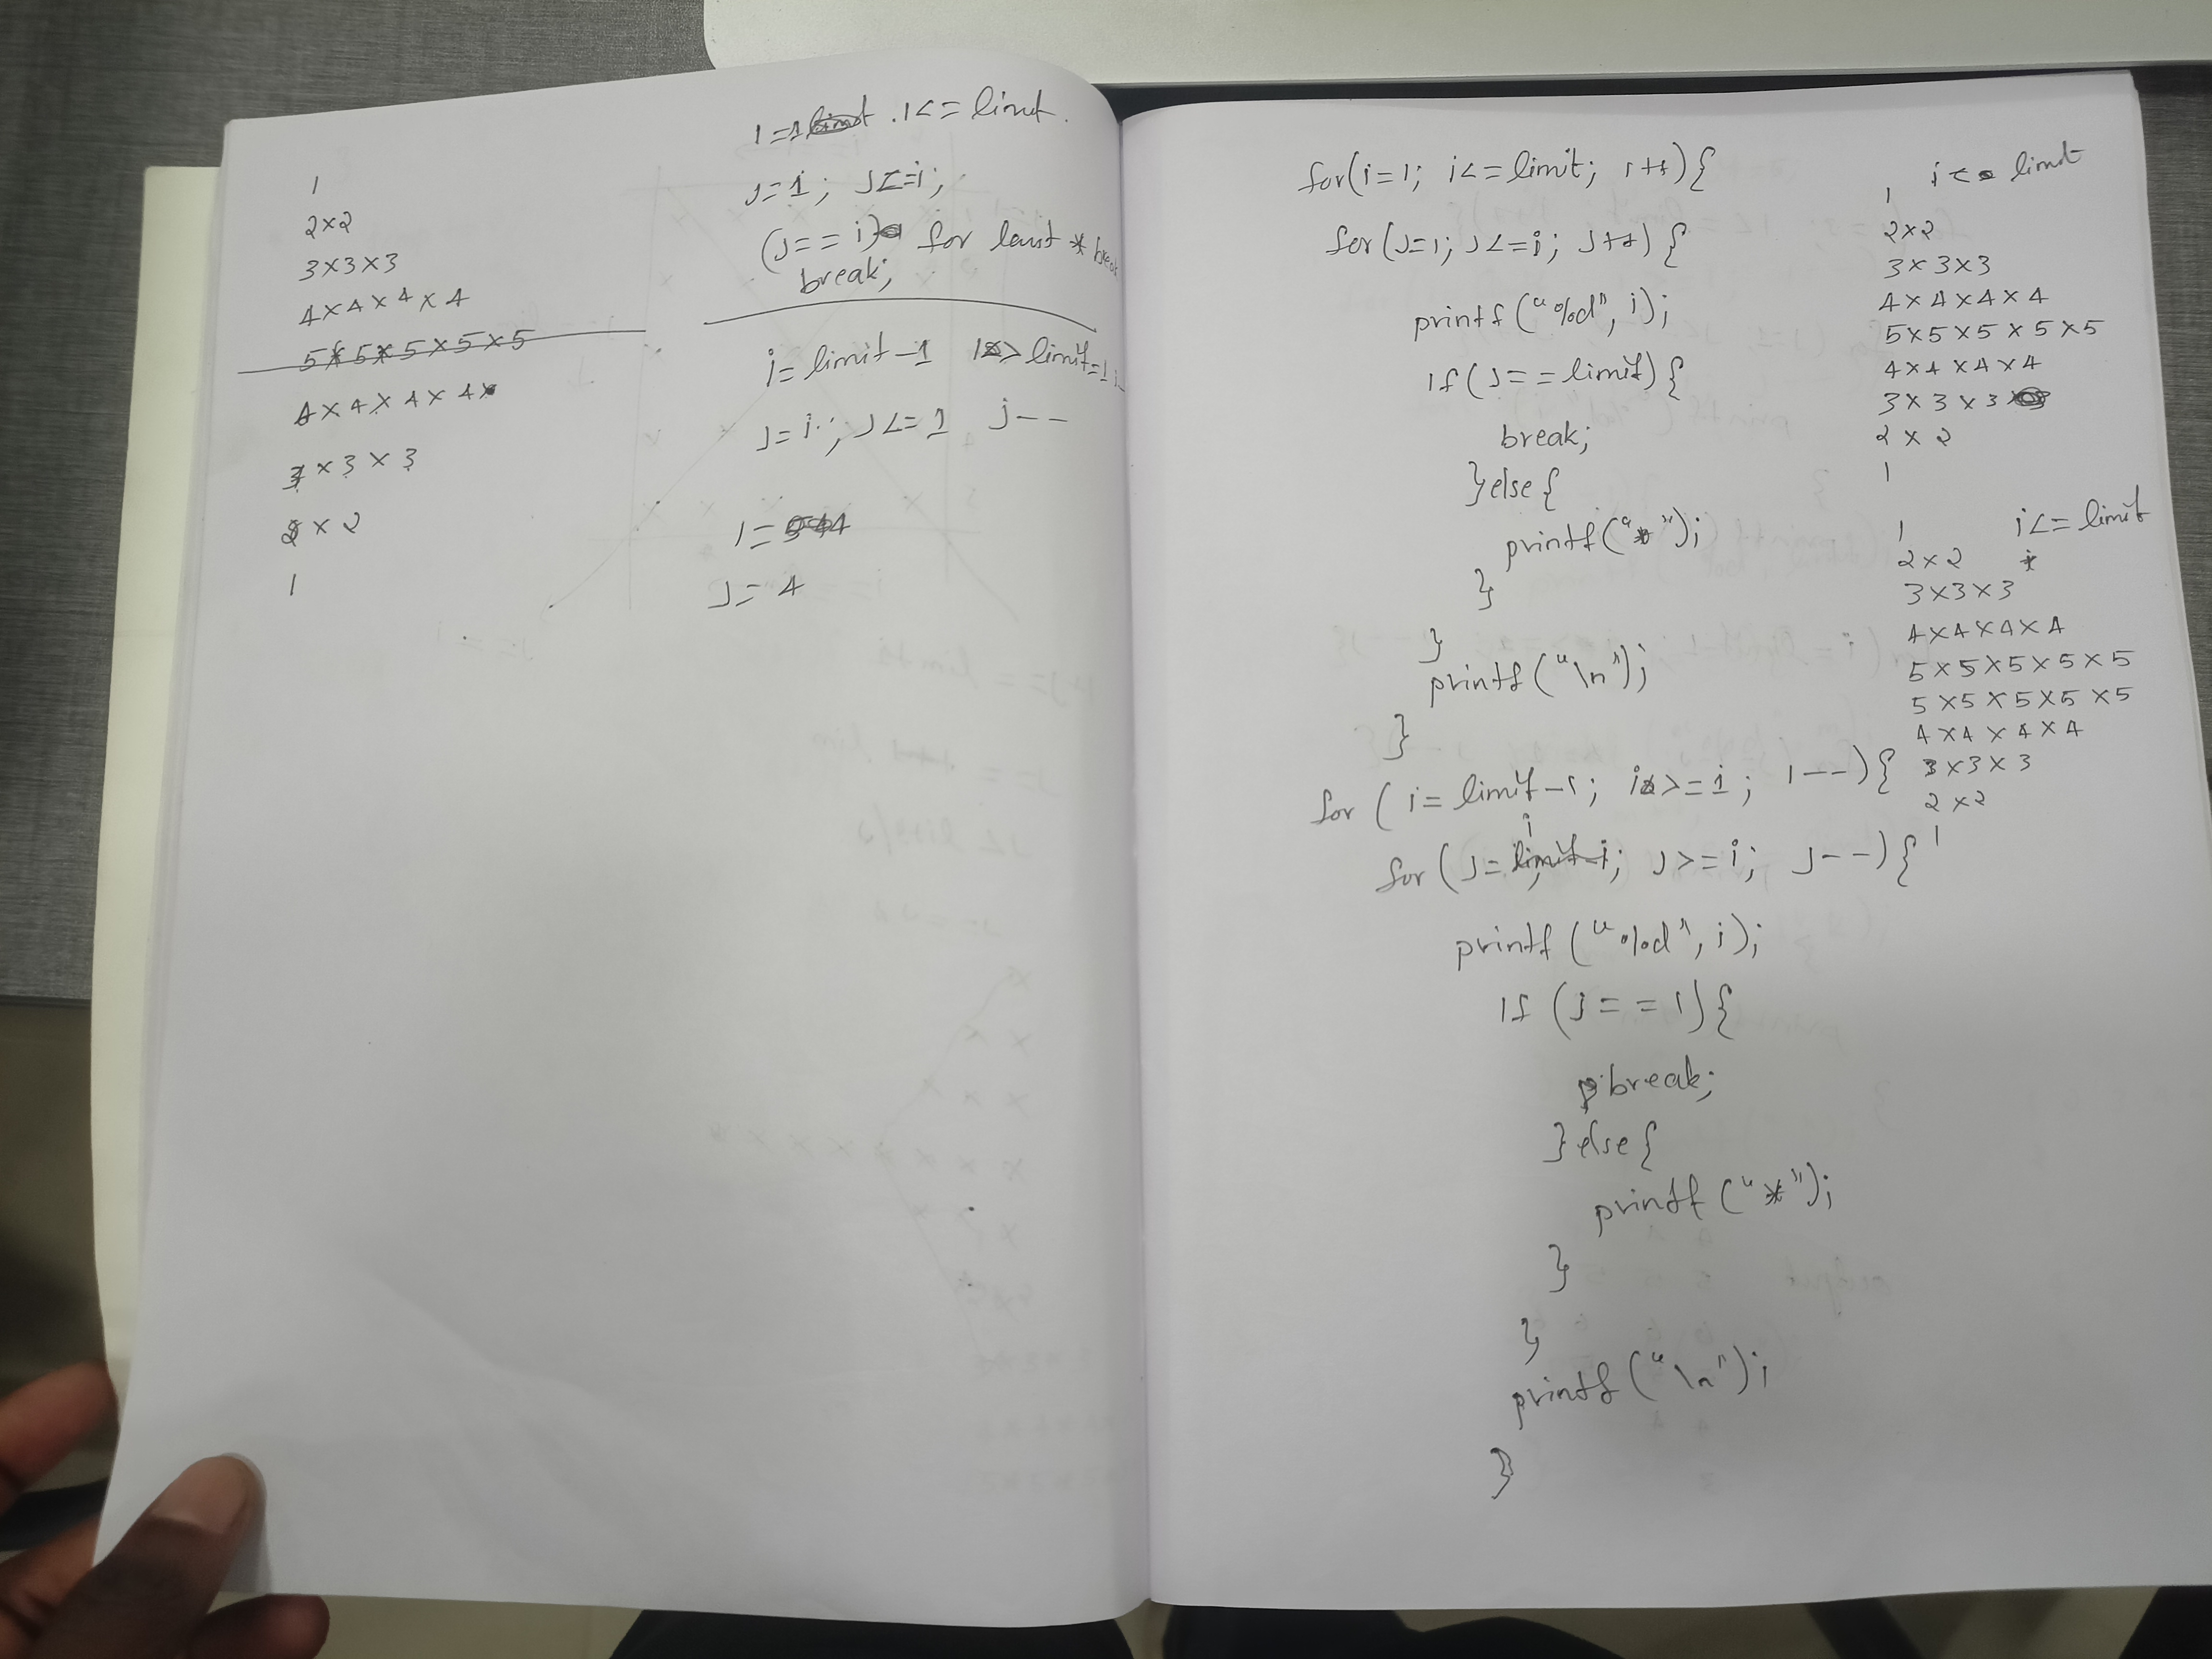 1
2×2
3×3×3
4×4×4×4
5×5×5×5×5
4×4×4×4×
3×3×3
2×2
1
i=1 . i<= limit.
J=1; J<=i;
(J==i) for last * break
break;
i= limit-1 i> limit=1 i--
J=i; J<=1 j--
i=
J= 4
for(i=1; i<=limit; i++){
for(J=1; J<=i; J++) {
printf("%d", i);
if(J==limit){
break;
}else{
printf("*");
}
}
printf("\n");
}
for( i= limit-1; i>=1; i--){
for(J= i; J>=i; J--){
printf("%d", i);
if (j==1){
break;
}else{
printf("*");
}
}
printf("\n");
}
i< limit
1
2×2
3×3×3
4×4×4×4
5×5×5×5×5
4×4×4×4
3×3×3
2×2
1
1 i<=limit
2×2 i
3×3×3
4×4×4×4
5×5×5×5×5
5×5×5×5×5
4×4×4×4
3×3×3
2×2
1